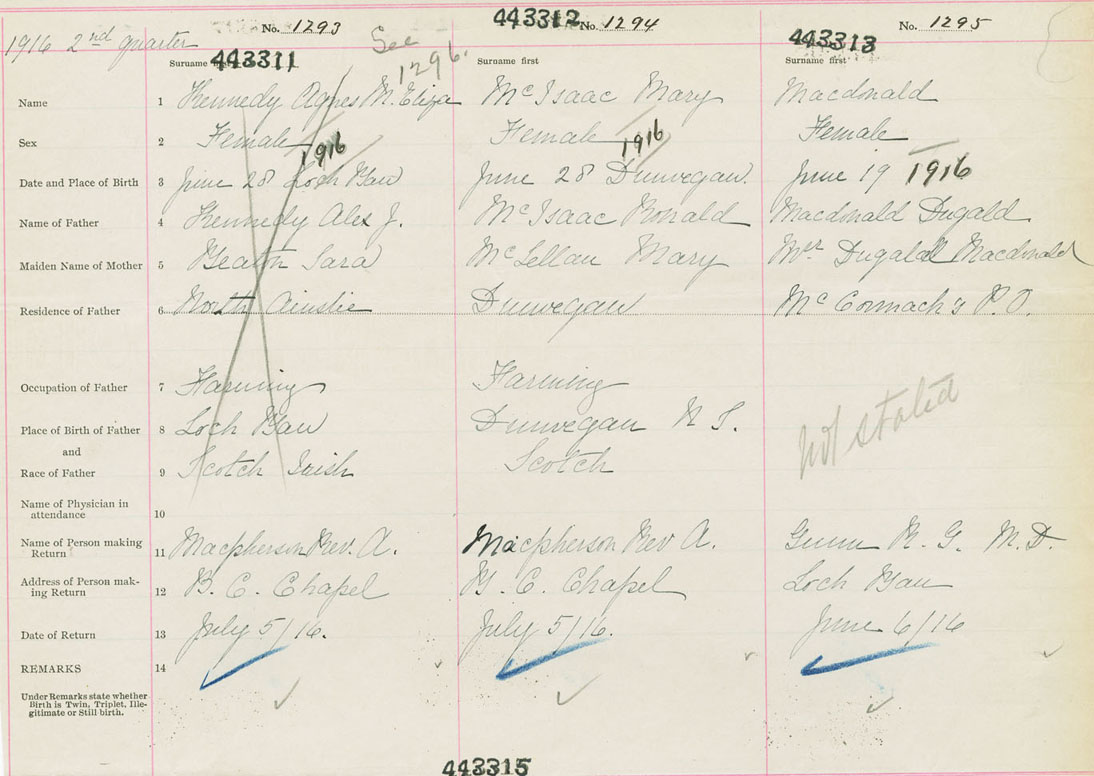 No. 1293 443312 No. 1294 No. 1295
1916 2nd quarter See 1296. 443313
443311
Surname first Surname first Surname first
Name 1 Kennedy Agnes M. Eliza McIsaac Mary Macdonald
Sex 2 Female Female Female
1916 1916
Date and Place of Birth 3 June 28 Loch Ban June 28 Dunvegan. June 19 1916
Name of Father 4 Kennedy Alex J. McIsaac Ronald Macdonald Dugald
Maiden Name of Mother 5 Beaton Sara McLellan Mary Mrs Dugald Macdonald
Residence of Father 6 North Ainslie Dunvegan McCormack's P.O.
Occupation of Father 7 Farming Farming
Place of Birth of Father 8 Loch Ban Dunvegan N S. Not stated
and
Race of Father 9 Scotch Irish Scotch
Name of Physician in
attendance 10
Name of Person making
Return 11 Macpherson Rev. A. Macpherson Rev A. Gunn N. G. M.D.
Address of Person mak-
ing Return 12 B. C. Chapel B. C. Chapel Loch Ban
Date of Return 13 July 5/16. July 5/16. June 6/16
REMARKS 14
Under Remarks state whether
Birth is Twin, Triplet, Ille-
gitimate or Still birth.
443315